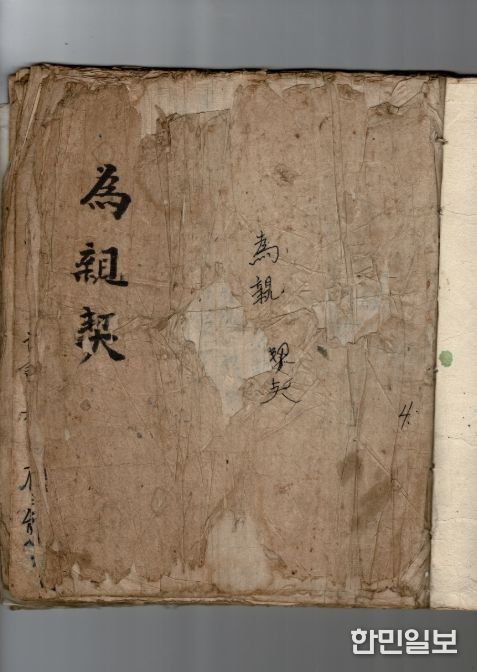 為親契
為親契
4.
한민일보